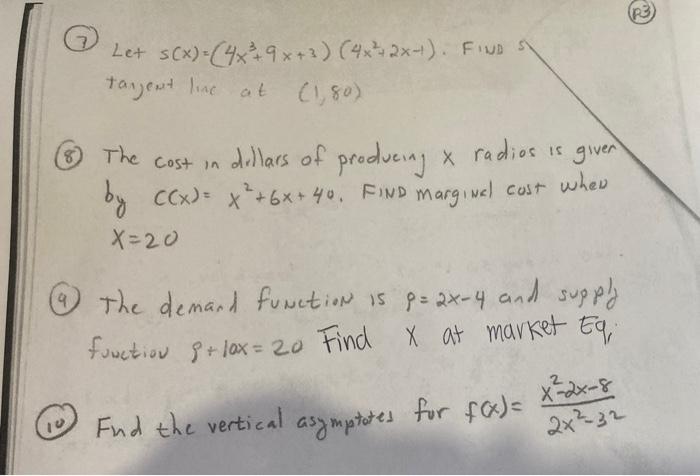 P3
7 Let s(x)=(4x³+9x+3)(4x²+2x-1). FIND s
tangent line at (1,80)
8 The cost in dollars of producing x radios is given
by C(x)= x²+6x+40. FIND marginal cost when
X=20
9 The demand function is p=2x-4 and supply
function p+10x=20 Find X at market Eq.
10 Find the vertical asymptotes for f(x)= x²-2x-8
2x²-32